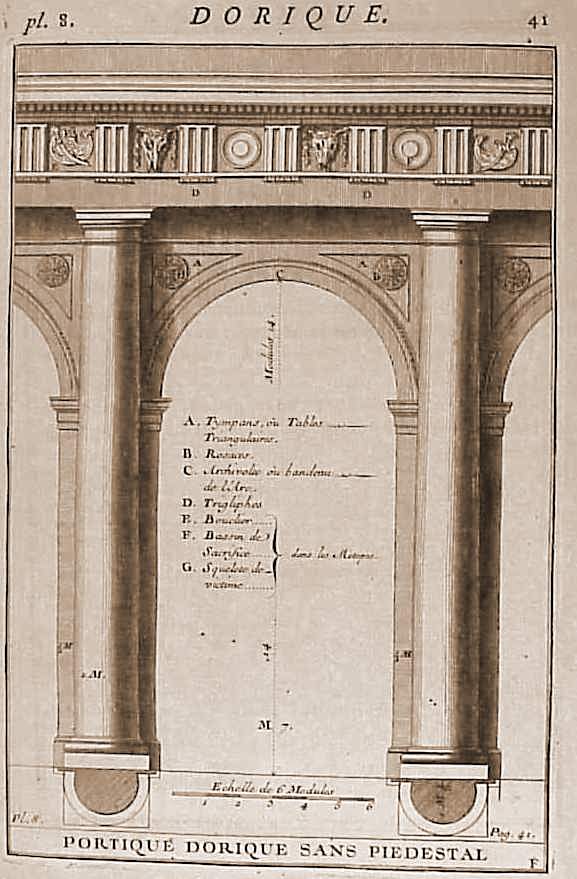 pl. 8. DORIQUE. 41
D D
A A
B
C
Modules 14.
A. Tympans, ou Tables
Triangulaires.
B. Rosaces.
C. Archivolte ou bandeau
de l'Arc.
D. Trigliphes
E. Bouclier
F. Bassin de
Sacrifice
dans les Metopes.
G. Squelete de
victime
½M ½M
2.M.
M 7.
Echelle de 6 Modules
1 2 3 4 5 6
Pl. 8. Pag. 41.
PORTIQUE DORIQUE SANS PIEDESTAL
F